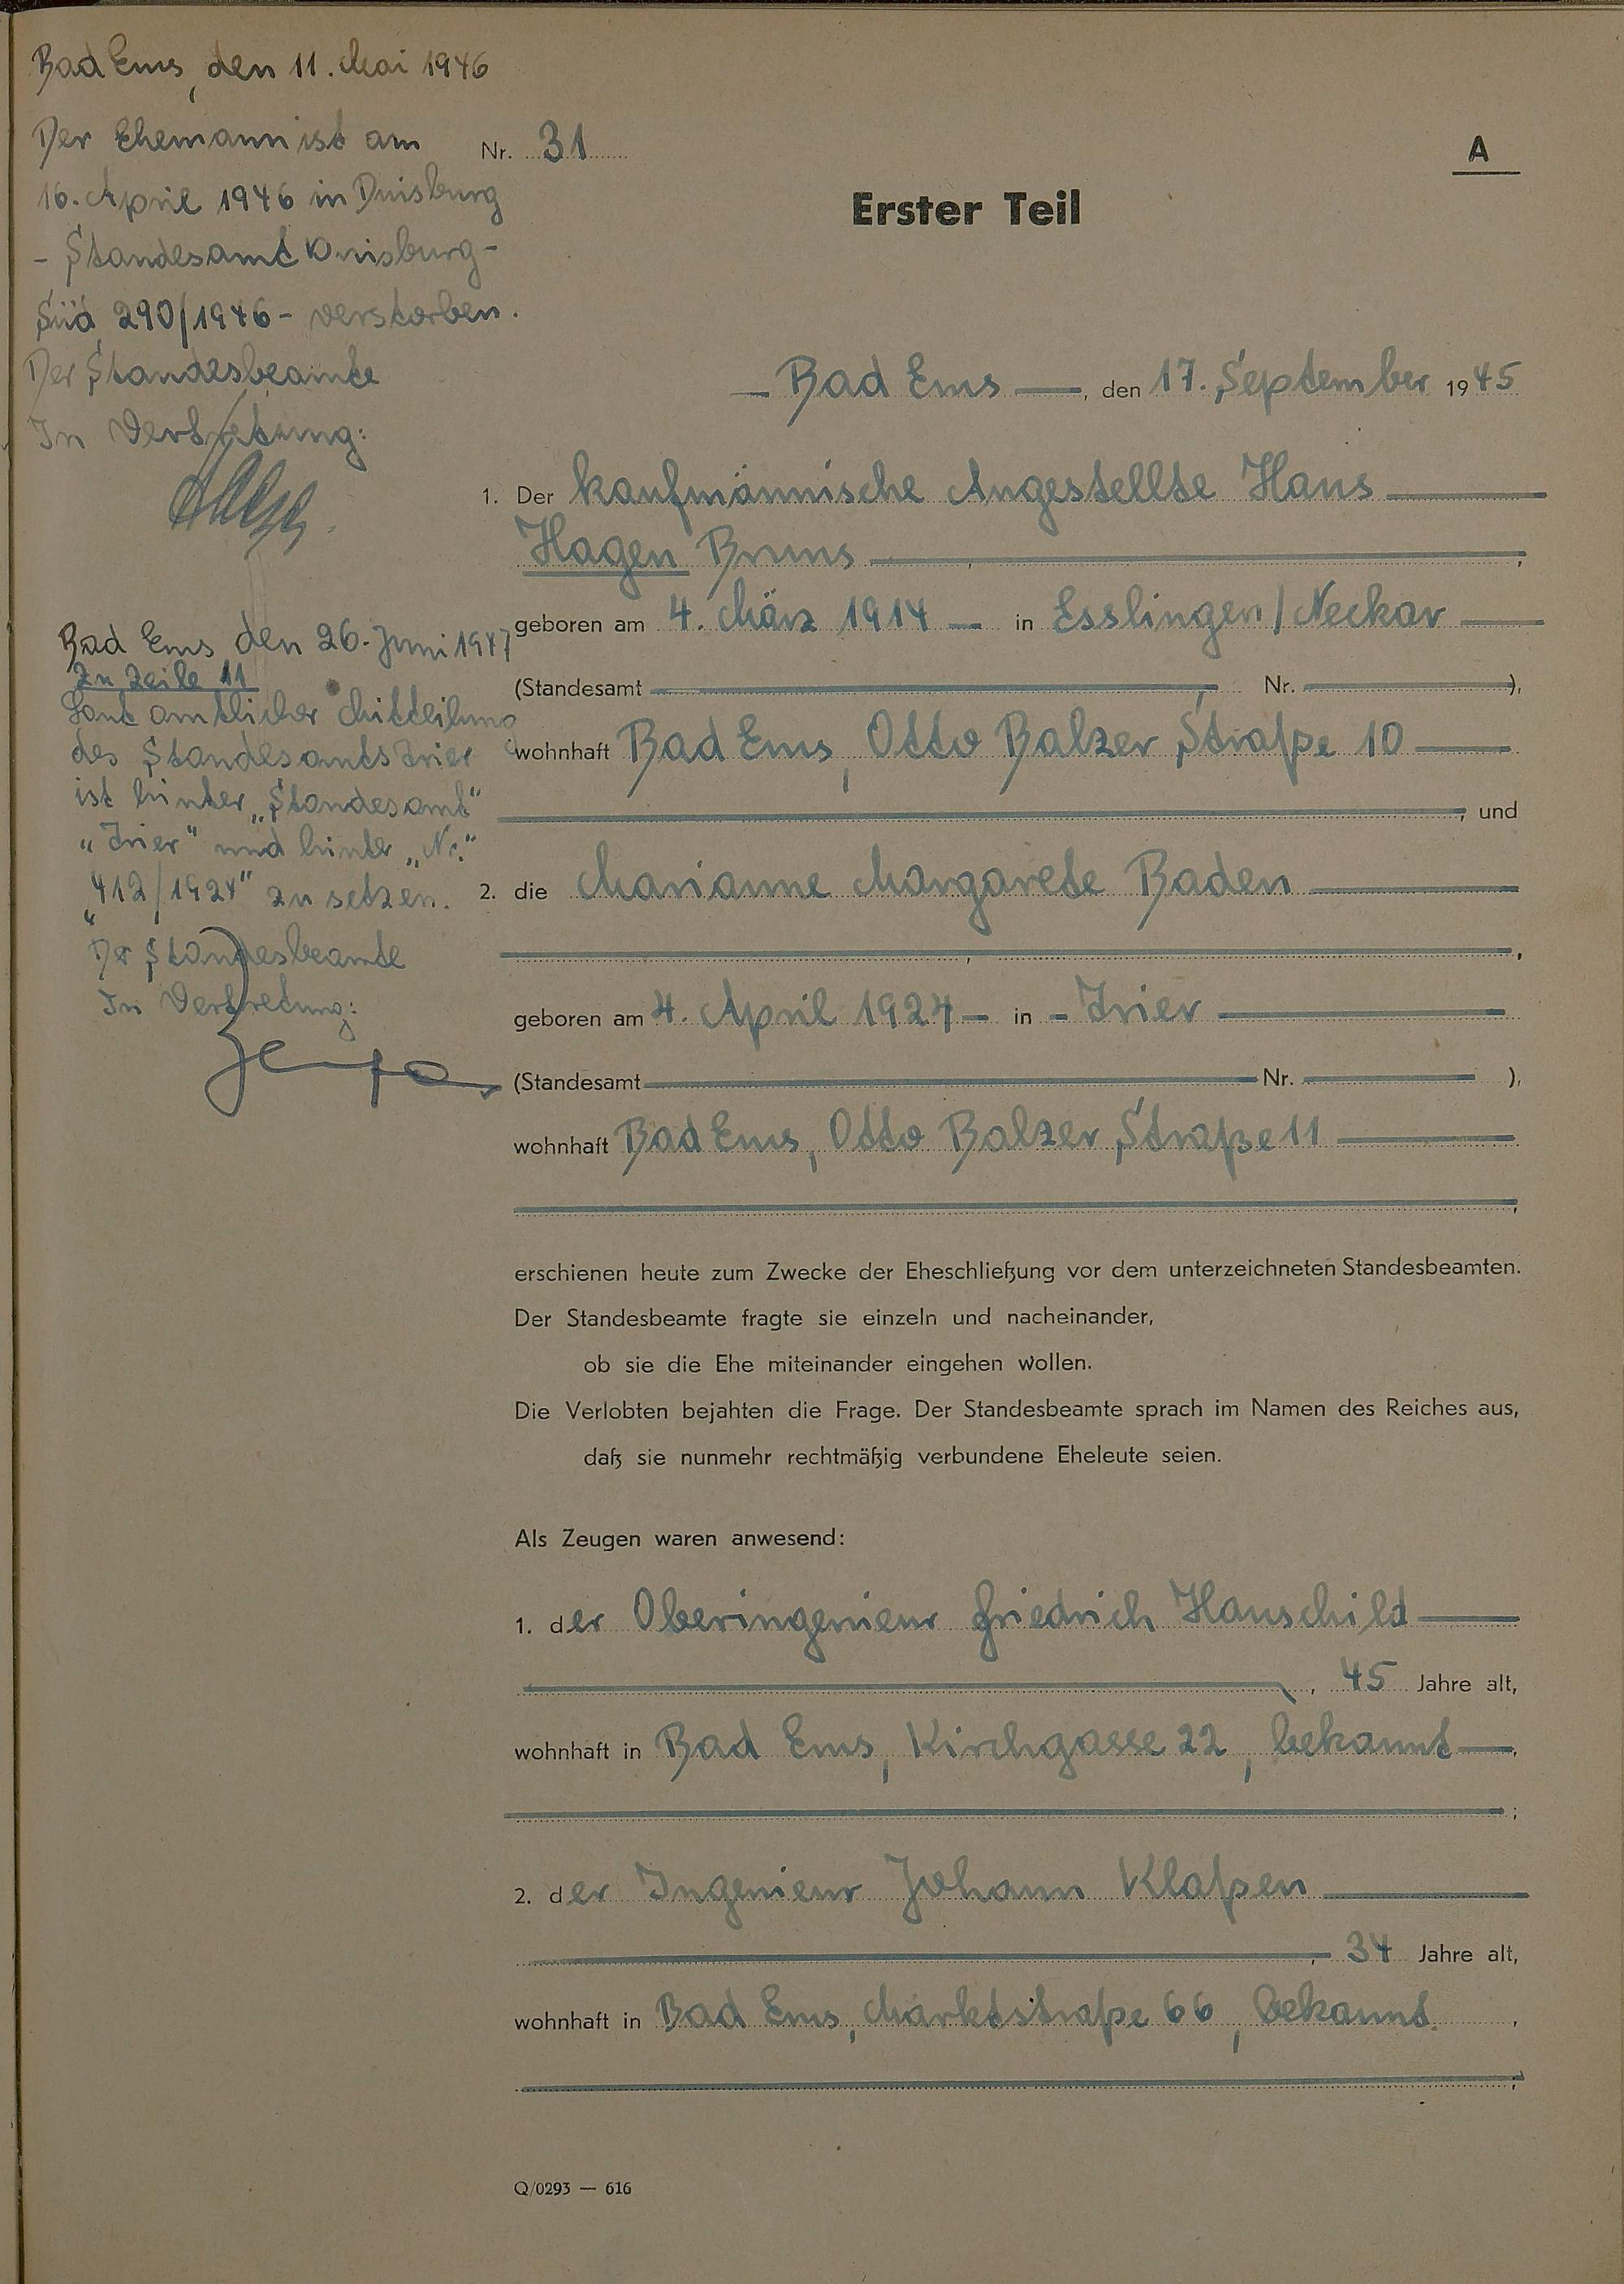 Bad Ems, den 11. Mai 1946
Der Ehemann ist am
16. April 1946 in Duisburg
- Standesamt Duisburg-
Süd 290/1946 - verstorben.
Der Standesbeamte
In Vertretung:
Bad Ems den 26. Juni 1947
Zu Zeile 11
Laut amtlicher Mitteilung
des Standesamts Trier
ist hinter „Standesamt"
„Trier" und hinter „Nr."
„412/1924" zu setzen.
Der Standesbeamte
In Vertretung:
Nr. 31
A
Erster Teil
Bad Ems, den 17. September 1945
1. Der kaufmännische Angestellte Hans
Hagen Bruns,
geboren am 4. März 1914 in Esslingen/Neckar
(Standesamt Nr. ),
wohnhaft Bad Ems, Otto Balzer Straße 10
, und
2. die Marianne Margarete Baden
,
geboren am 4. April 1924 in Trier
(Standesamt Nr. ),
wohnhaft Bad Ems, Otto Balzer Straße 11
,
erschienen heute zum Zwecke der Eheschließung vor dem unterzeichneten Standesbeamten.
Der Standesbeamte fragte sie einzeln und nacheinander,
ob sie die Ehe miteinander eingehen wollen.
Die Verlobten bejahten die Frage. Der Standesbeamte sprach im Namen des Reiches aus,
daß sie nunmehr rechtmäßig verbundene Eheleute seien.
Als Zeugen waren anwesend:
1. der Oberingenieur Friedrich Hauschild
, 45 Jahre alt,
wohnhaft in Bad Ems, Kirchgasse 22, bekannt,
;
2. der Ingenieur Johann Klaßen
, 34 Jahre alt,
wohnhaft in Bad Ems, Marktstraße 66, bekannt.,
;
Q/0293 — 616